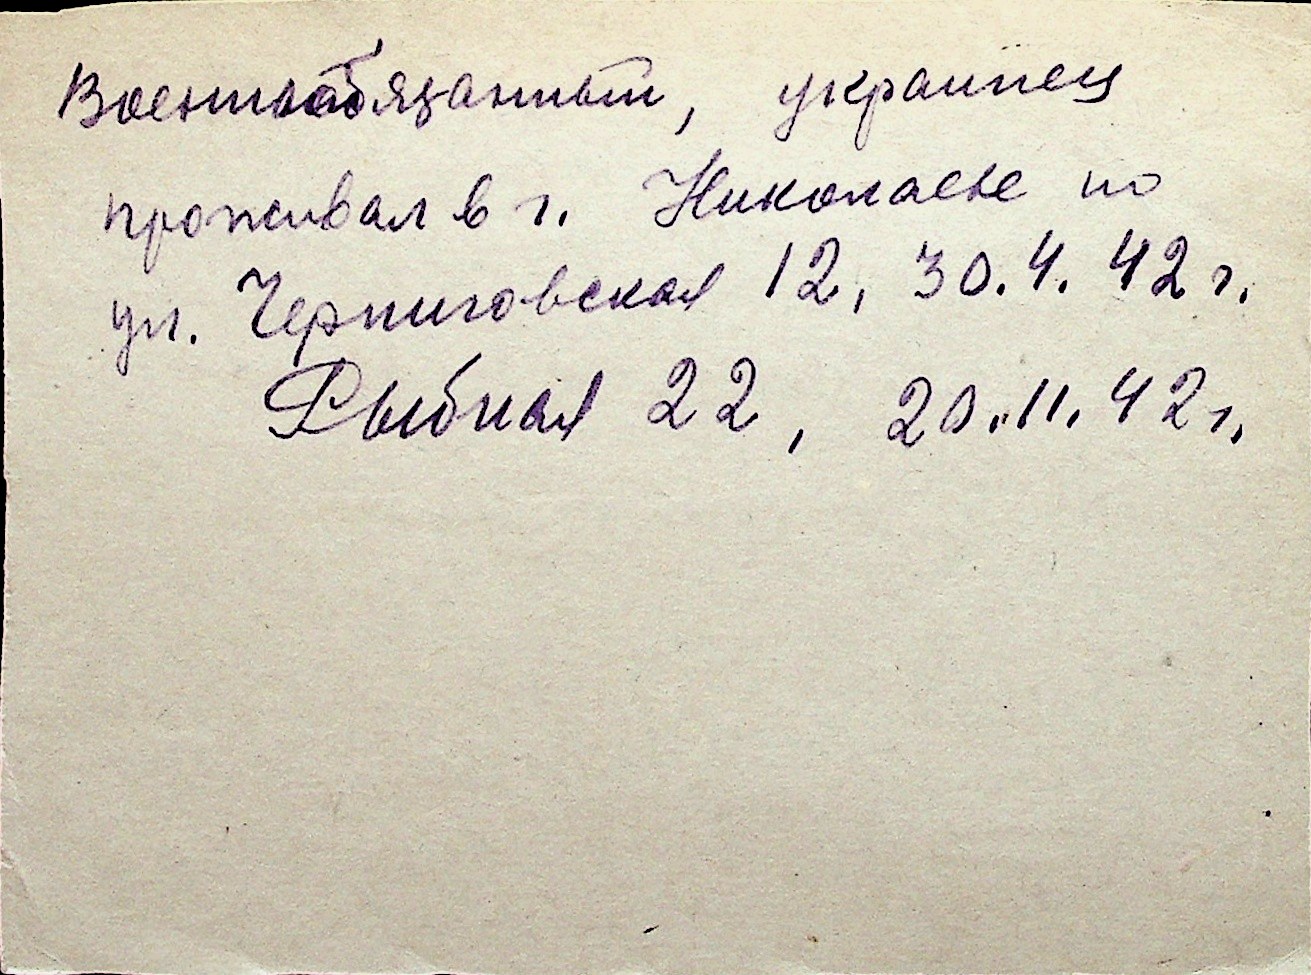 Военнообязанный, украинец
проживал в г. Николаеве по
ул. Черниговская 12, 30.4.42 г.
Рыбная 22, 20.11.42 г.